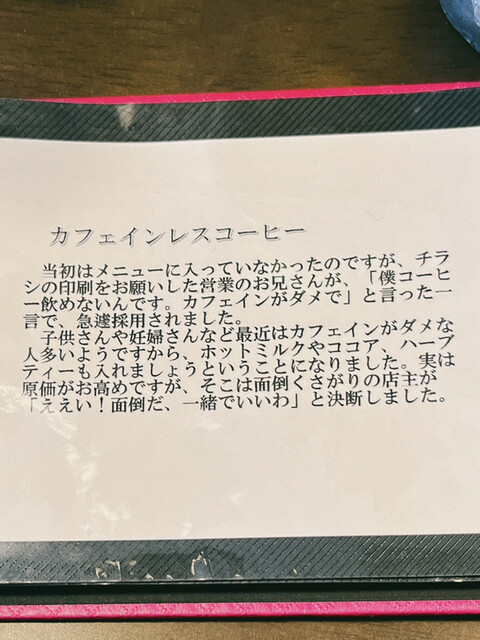 カフェインレスコーヒー
当初はメニューに入っていなかったのですが、チラ
シの印刷をお願いした営業のお兄さんが、「僕コーヒ
ー飲めないんです。カフェインがダメで」と言った一
言で、急遽採用されました。
子供さんや妊婦さんなど最近はカフェインがダメな
人多いようですから、ホットミルクやココア、ハーブ
ティーも入れましょうということになりました。実は
原価がお高めですが、そこは面倒くさがりの店主が
「ええい！面倒だ、一緒でいいわ」と決断しました。